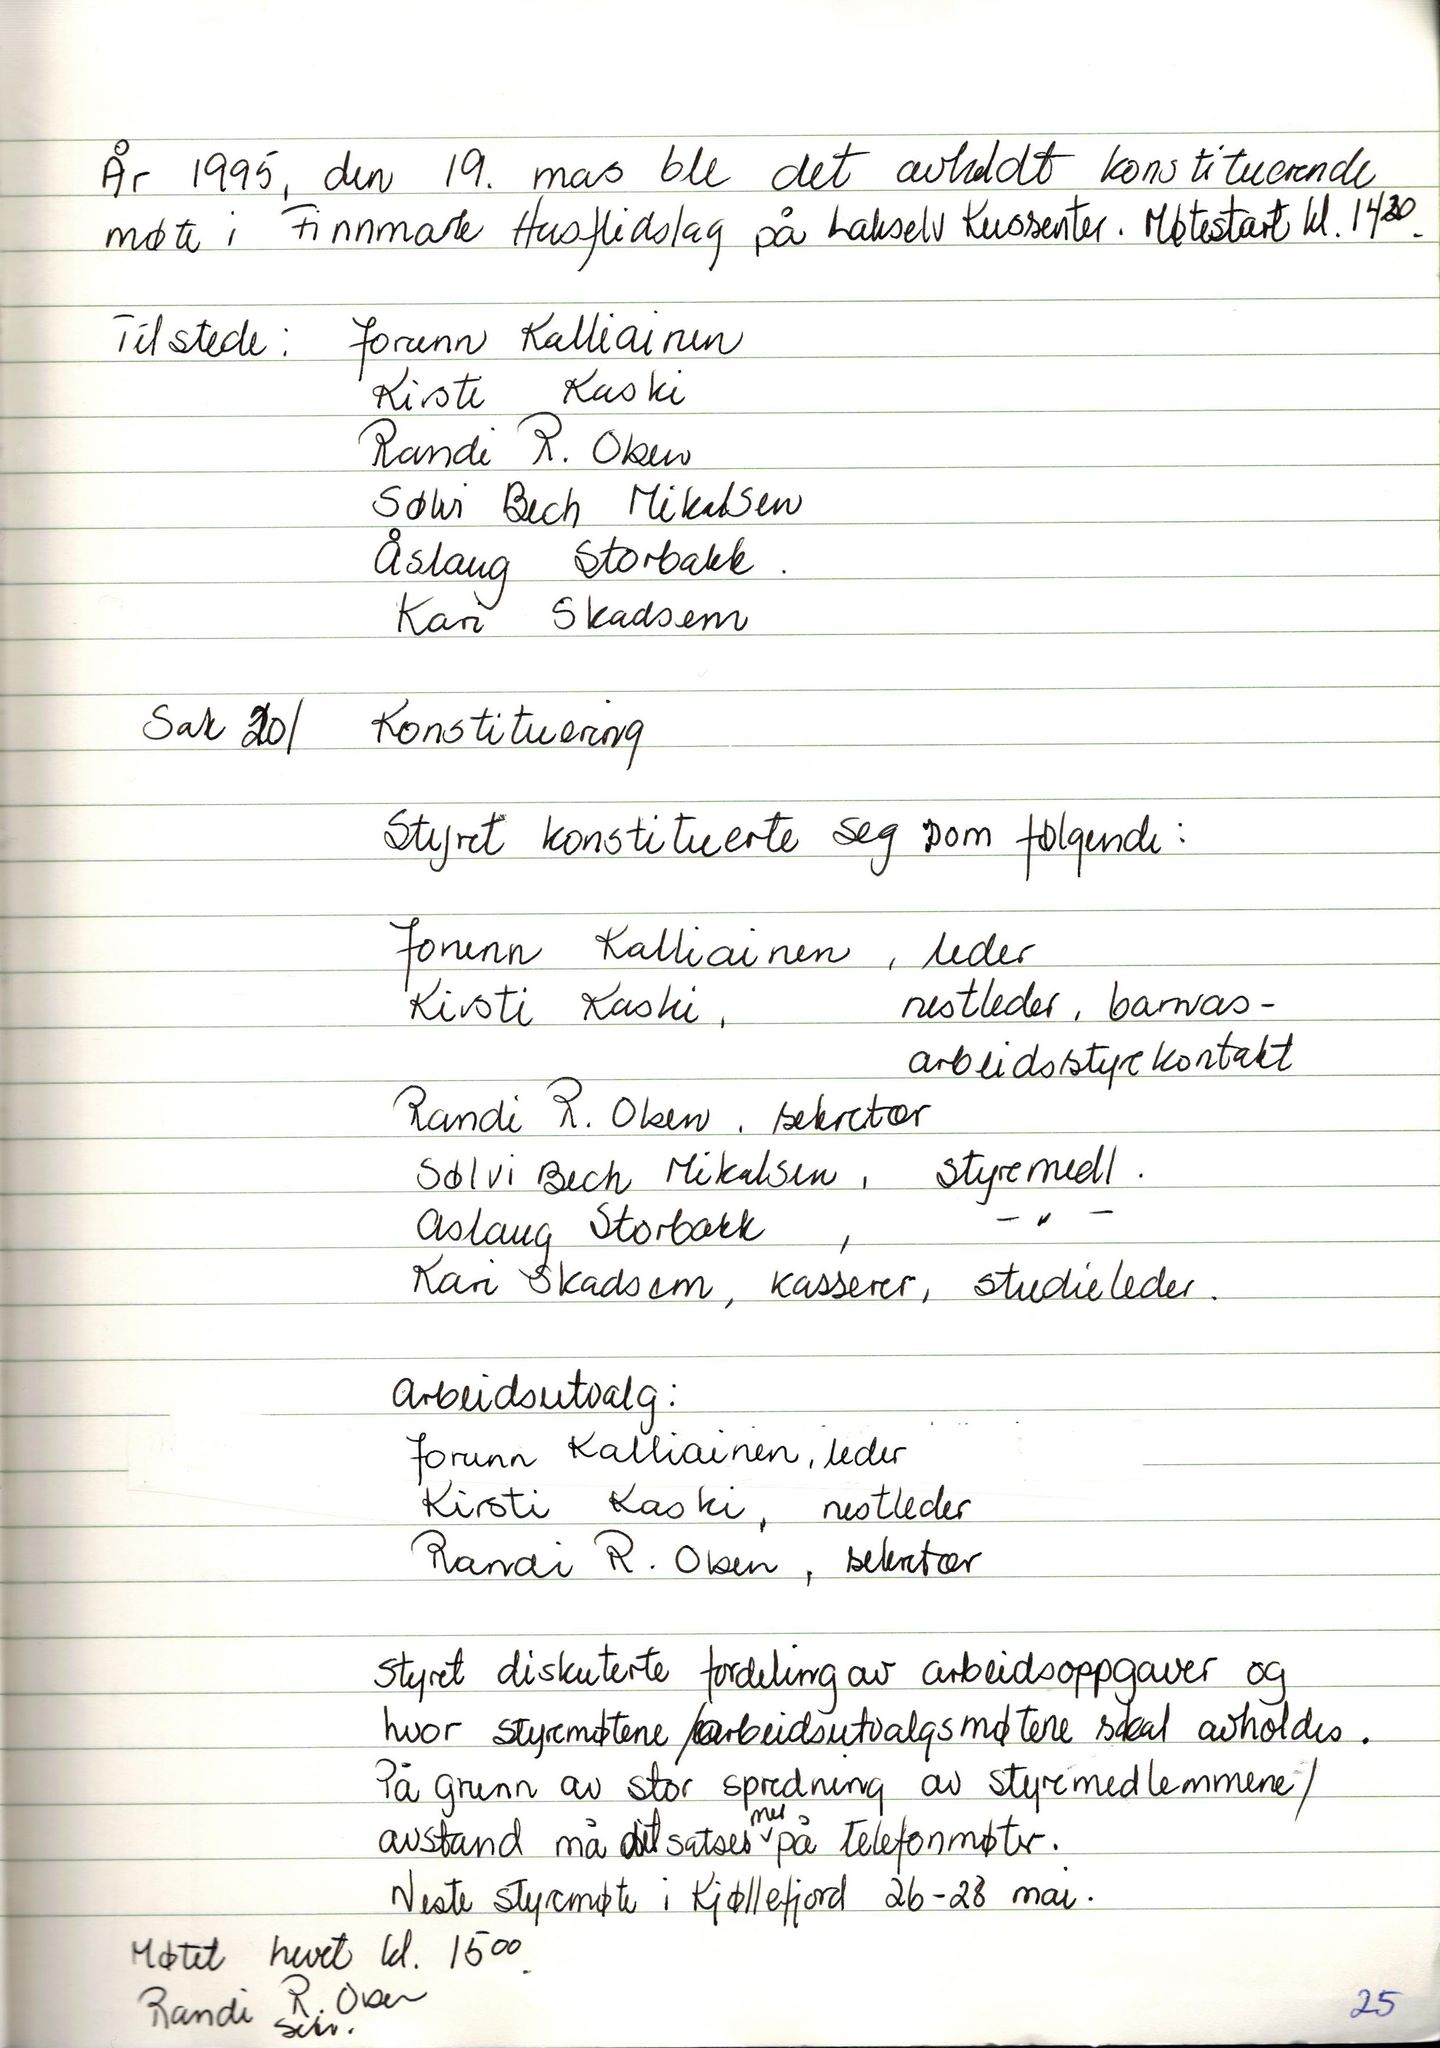 År 1995, den 19. mas ble det avholdt konstituerende
møte i Finnmark Husflidslag på Lakselv Kurssenter. Møtestart kl. 1430.
Tilstede: Jorunn Kalliainen
Kirsti Kaski
Randi R. Olsen
Sølvi Bech Mikalsen
Åslaug Storbakk.
Kari Skadsem
Sak 20/ Konstituering
Styret konstituerte seg som følgende:
Jorunn Kalliainen, leder
Kirsti Kaski, nestleder, barnas-
arbeidsstyrekontakt
Randi R. Olsen, sekretær
Sølvi Bech Mikalsen, styremedl.
Aslaug Storbakk, - " -
Kari Skadsem, kasserer, studieleder.
Arbeidsutvalg:
Jorunn Kalliainen, leder
Kirsti Kaski, nestleder
Randi R. Olsen, sekretær
Styret diskuterte fordeling av arbeidsoppgaver og
hvor styremøtene/arbeidsutvalgsmøtene skal avholdes.
På grunn av stor spredning av styremedlemmene/
avstand må det satses mer på telefonmøter.
Neste styremøte i Kjøllefjord 26-28 mai.
Møtet hevet kl. 1500.
Randi R. Olsen
sekr.
25